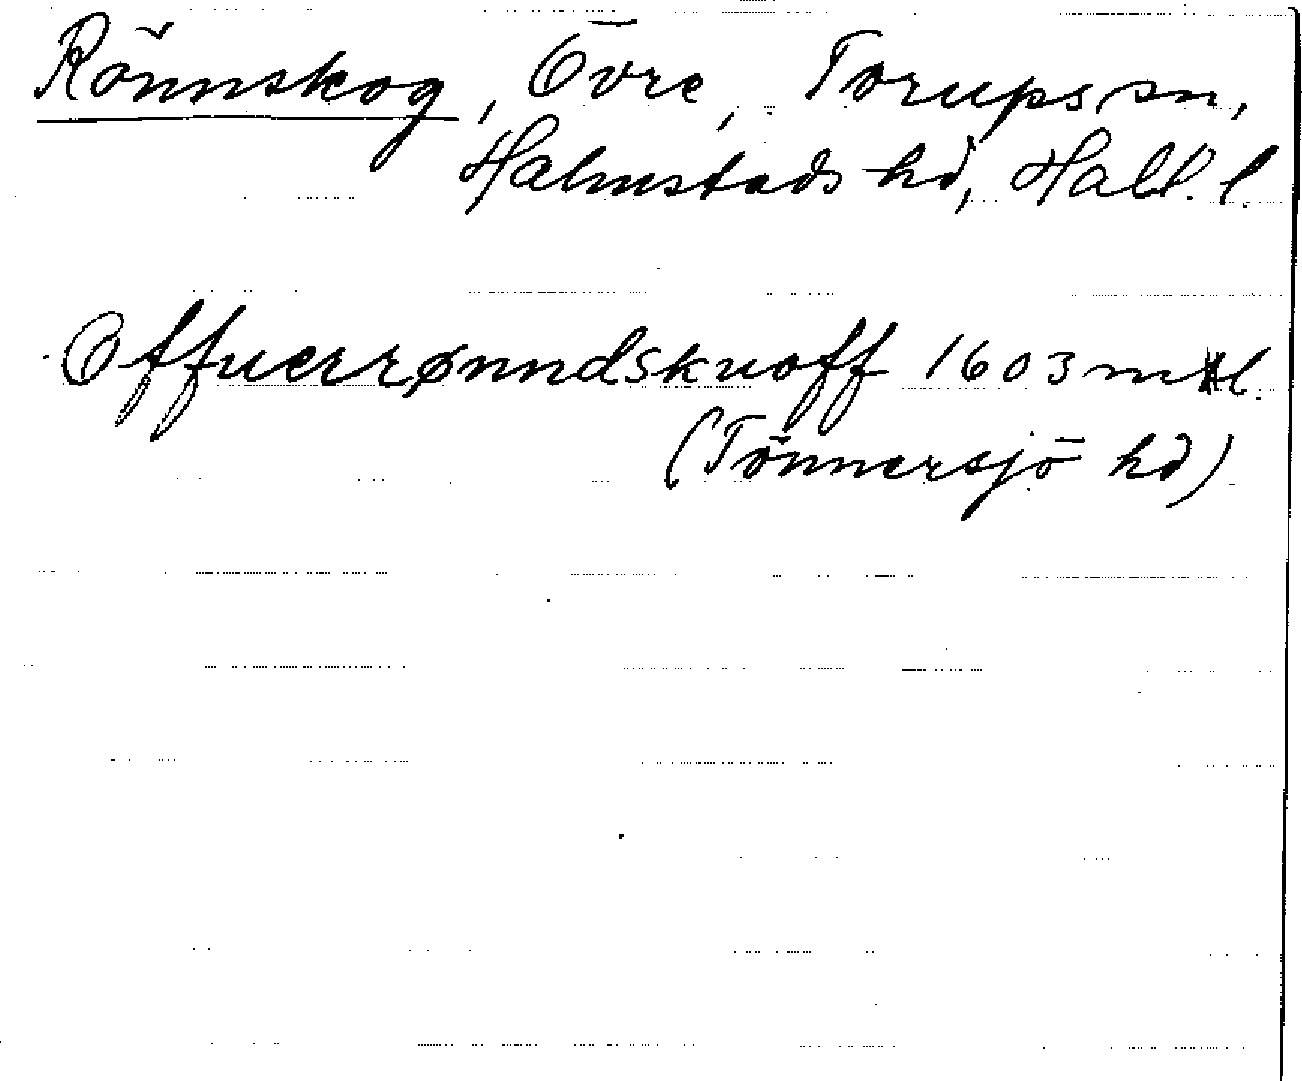 Rönnskog, Övre, Torups sn,
Halmstads hd, Hall. l.
Offuerrønndskuoff 1603 mtl.
(Tönnersjö hd)